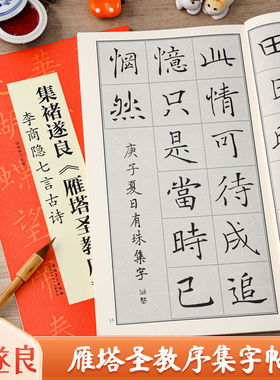 此情可待成追
憶只是當時已
惘然
庚子夏日有珠集字
集褚遂良《雁塔圣教序
李商隐七言古诗
遂良
雁塔圣教序集字帖